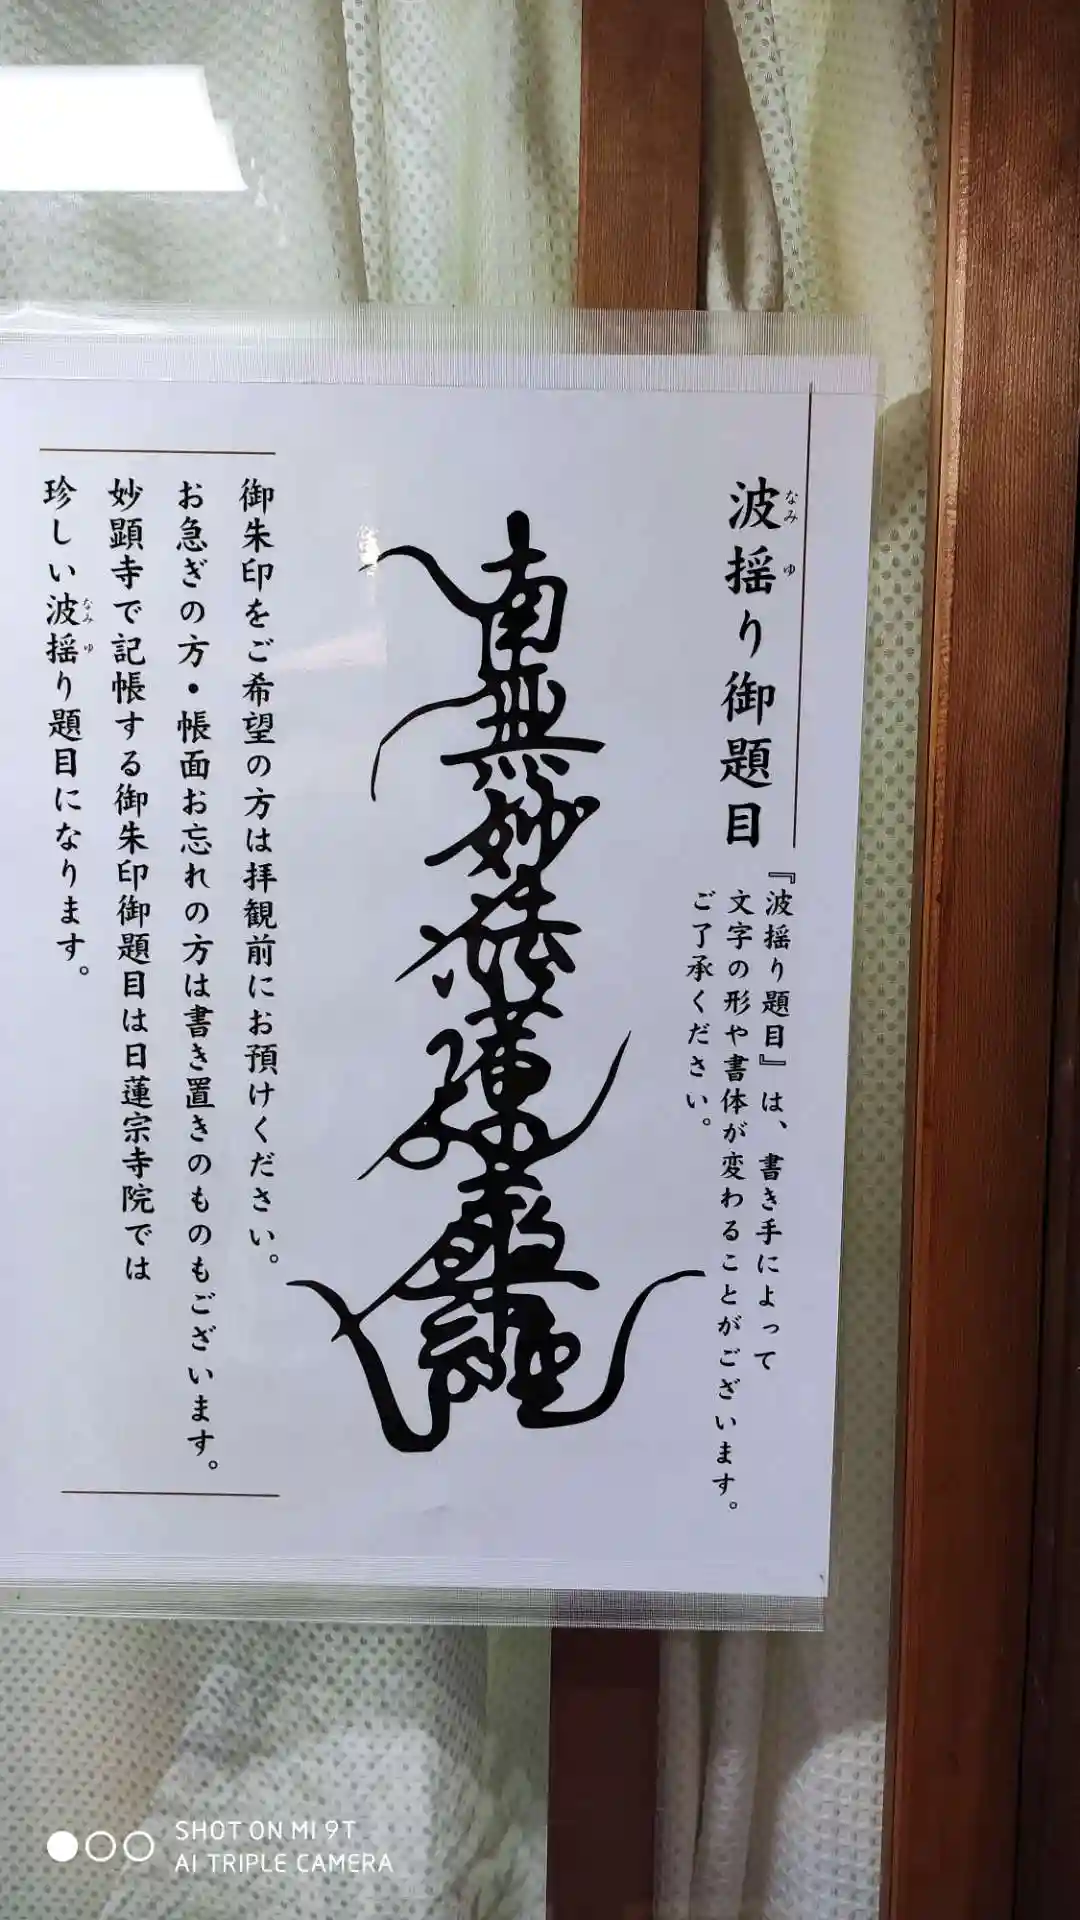 波揺り御題目
なみ ゆ
『波揺り題目』は、書き手によって
文字の形や書体が変わることがございます。
ご了承ください。
南無妙法蓮華経
御朱印をご希望の方は拝観前にお預けください。
お急ぎの方・帳面お忘れの方は書き置きのものもございます。
妙顕寺で記帳する御朱印御題目は日蓮宗寺院では
珍しい波揺り題目になります。
なみ ゆ
SHOT ON MI 9T
AI TRIPLE CAMERA